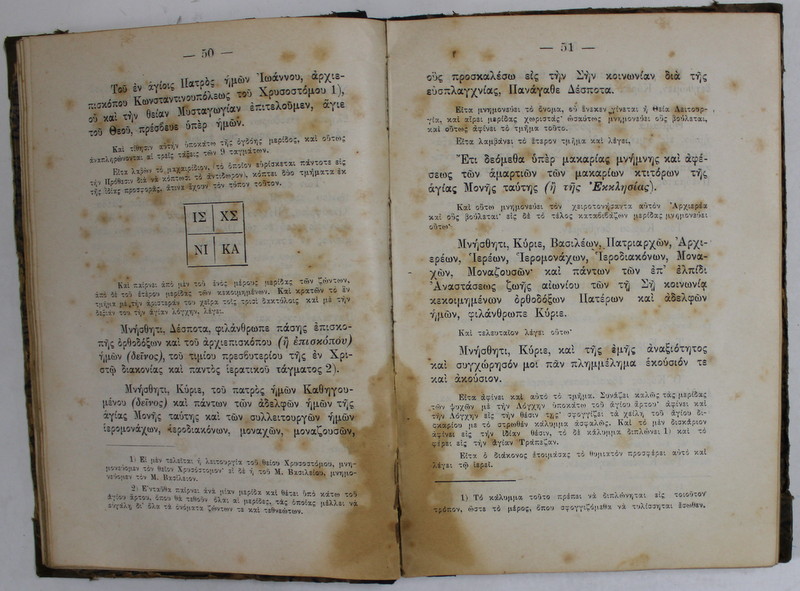 — 50 —
Τοῦ ἐν ἁγίοις Πατρὸς ἡμῶν Ἰωάννου, ἀρχιε-
πισκόπου Κωνσταντινουπόλεως τοῦ Χρυσοστόμου 1),
οὗ καὶ τὴν θείαν Μυσταγωγίαν ἐπιτελοῦμεν, ἅγιε
τοῦ Θεοῦ, πρέσβευε ὑπὲρ ἡμῶν.
Καὶ τίθησιν αὐτὴν ὑποκάτω τῆς ὀγδόης μερίδος, καὶ οὕτως
ἀναπληρώνονται αἱ τρεῖς τάξεις τῶν 9 ταγμάτων.
Εἶτα λαβὼν τὸ μαχαιρίδιον, (τὸ ὁποῖον εὑρίσκεται πάντοτε εἰς
τὴν Πρόθεσιν διὰ νὰ κόπτωσι τὸ ἀντίδωρον), κόπτει δύο τμήματα ἐκ
τῆς ἰδίας προσφορᾶς, ἅτινα ἔχουν τὸν τύπον τοῦτον.
ΙΣ ΧΣ
ΝΙ ΚΑ
Καὶ παίρνει ἀπὸ μὲν τοῦ ἑνὸς μέρους μερίδας τῶν ζώντων,
ἀπὸ δὲ τοῦ ἑτέρου μερίδας τῶν κεκοιμημένων. Καὶ κρατῶν τὸ ἓν
τμῆμα μὲ τὴν ἀριστερὰν του χεῖρα τοῖς τρισὶ δακτύλοις καὶ μὲ τὴν
δεξιὰν του τὴν ἁγίαν λόγχην, λέγει.
Μνήσθητι, Δέσποτα, φιλάνθρωπε πάσης ἐπισκο-
πῆς ὀρθοδόξων καὶ τοῦ ἀρχιεπισκόπου (ἢ ἐπισκόπου)
ἡμῶν (δεῖνος), τοῦ τιμίου πρεσβυτερίου τῆς ἐν Χρι-
στῷ διακονίας καὶ παντὸς ἱερατικοῦ τάγματος 2).
Μνήσθητι, Κύριε, τοῦ πατρὸς ἡμῶν Καθηγου-
μένου (δεῖνος) καὶ πάντων τῶν ἀδελφῶν ἡμῶν τῆς
ἁγίας Μονῆς ταύτης καὶ τῶν συλλειτουργῶν ἡμῶν
ἱερομονάχων, ἱεροδιακόνων, μοναχῶν, μοναζουσῶν,
1) Εἰ μὲν τελεῖται ἡ λειτουργία τοῦ θείου Χρυσοστόμου, μνη-
μονεύομεν τὸν θεῖον Χρυσόστομον· εἰ δὲ ἡ τοῦ Μ. Βασιλείου, μνημο-
νεύομεν τὸν Μ. Βασίλειον.
2) Ἐνταῦθα παίρνει ἀνὰ μίαν μερίδα καὶ θέτει ὑπὸ κάτω τοῦ
ἁγίου ἄρτου, ὅπου θὰ τεθοῦν ὅλαι αἱ μερίδες, τὰς ὁποίας μέλλει νὰ
εὐγάλῃ δι' ὅλα τὰ ὀνόματα ζώντων τε καὶ τεθνεώτων.
— 51 —
οὓς προσκαλέσω εἰς τὴν Σὴν κοινωνίαν διὰ τῆς
εὐσπλαγχνίας, Πανάγαθε Δέσποτα.
Εἶτα μνημονεύει τὸ ὄνομα, οὗ ἕνεκεν γίνεται ἡ Θεία Λειτουρ-
γία, καὶ αἴρει μερίδας χωριστάς· ὡσαύτως μνημονεύει οὓς βούλεται,
καὶ οὕτως ἀφίνει τὸ τμῆμα τοῦτο.
Εἶτα λαμβάνει τὸ ἕτερον τμῆμα καὶ λέγει.
Ἔτι δεόμεθα ὑπὲρ μακαρίας μνήμης καὶ ἀφέ-
σεως τῶν ἁμαρτιῶν τῶν μακαρίων κτιτόρων τῆς
ἁγίας Μονῆς ταύτης (ἢ τῆς Ἐκκλησίας).
Καὶ οὕτω μνημονεύει τὸν χειροτονήσαντα αὐτὸν Ἀρχιερέα
καὶ οὓς βούλεται· εἰς δὲ τὸ τέλος καταβιβάζων μερίδας μνημονεύει
οὕτω·
Μνήσθητι, Κύριε, Βασιλέων, Πατριαρχῶν, Ἀρχι-
ερέων, Ἱερέων, Ἱερομονάχων, Ἱεροδιακόνων, Μονα-
χῶν, Μοναζουσῶν· καὶ πάντων τῶν ἐπ' ἐλπίδι
Ἀναστάσεως ζωῆς αἰωνίου τῶν τῇ Σῇ κοινωνίᾳ
κεκοιμημένων ὀρθοδόξων Πατέρων καὶ ἀδελφῶν
ἡμῶν, φιλάνθρωπε Κύριε.
Καὶ τελευταῖον λέγει οὕτω·
Μνήσθητι, Κύριε, καὶ τῆς ἐμῆς ἀναξιότητος
καὶ συγχώρησόν μοι πᾶν πλημμέλημα ἑκούσιόν τε
καὶ ἀκούσιον.
Εἶτα ἀφίνει καὶ αὐτὸ τὸ τμῆμα. Συνάζει καλῶς τὰς μερίδας
τῶν ψυχῶν μὲ τὴν Λόγχην ὑποκάτω τοῦ ἁγίου ἄρτου· ἀφίνει καὶ
τὴν Λόγχην εἰς τὴν θέσιν της· σφογγίζει τὰ χείλη τοῦ ἁγίου δι-
σκαρίου μὲ τὸ στρωθὲν κάλυμμα ἀσφαλῶς. Καὶ τὸ μὲν δισκάριον
ἀφίνει εἰς τὴν ἰδίαν θέσιν, τὸ δὲ κάλυμμα διπλώνει 1) καὶ τὸ
φέρει εἰς τὴν ἁγίαν Τράπεζαν.
Εἶτα ὁ διάκονος ἑτοιμάσας τὸ θυμιατὸν προσφέρει αὐτὸ καὶ
λέγει τῷ ἱερεῖ.
1) Τὸ κάλυμμα τοῦτο πρέπει νὰ διπλώνηται εἰς τοιοῦτον
τρόπον, ὥστε τὸ μέρος, ὅπου σφογγιζόμεθα νὰ τυλίσσηται ἔσωθεν.